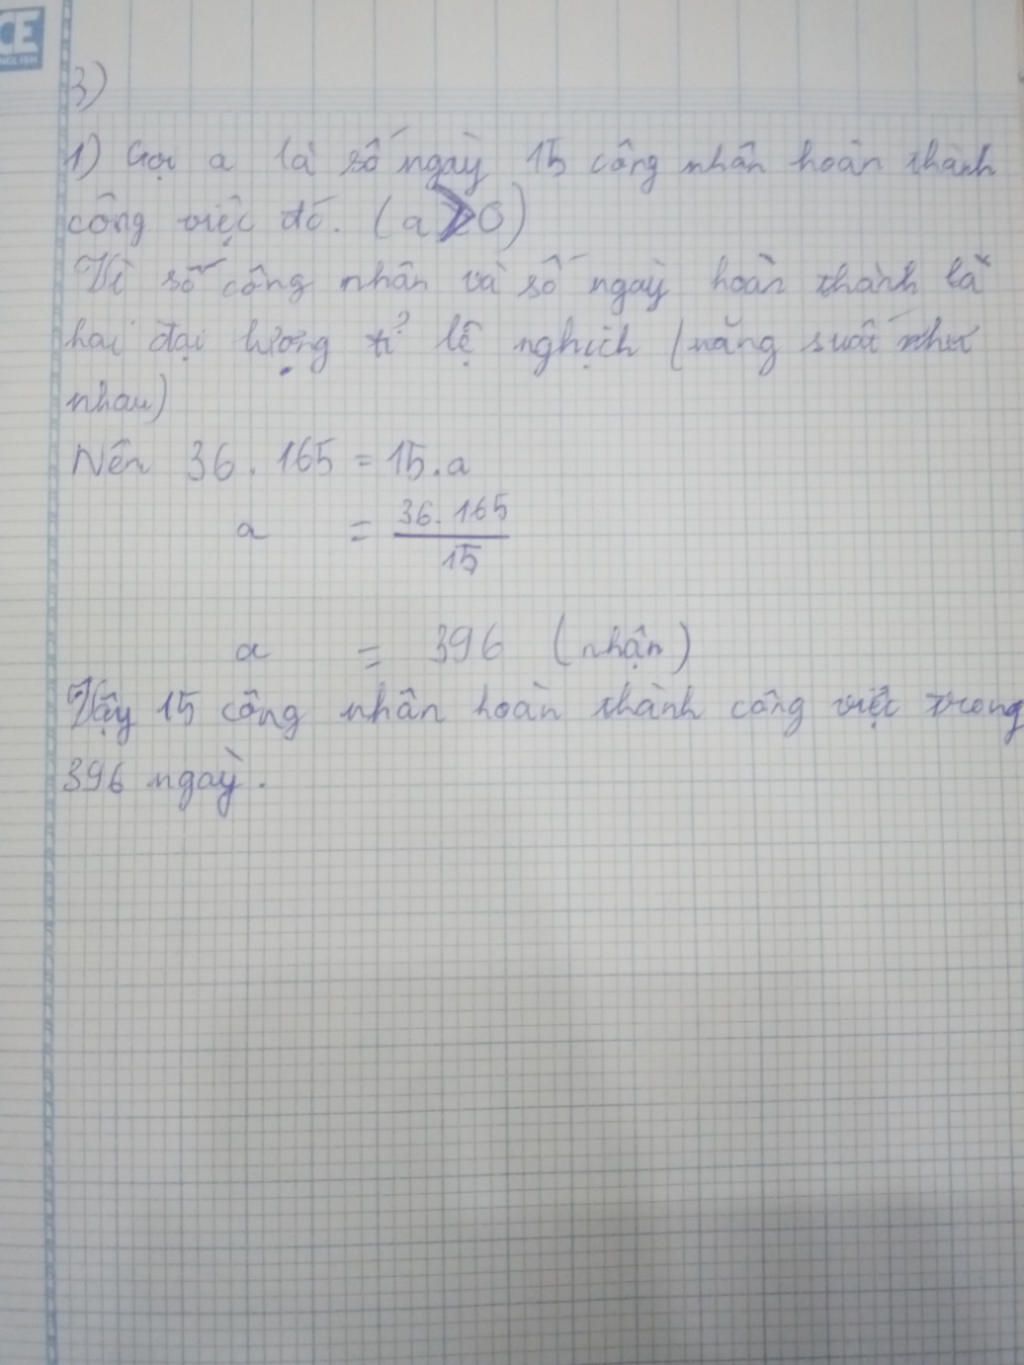 CE
ENGLISH
3)
1) Gọi a là số ngày 15 công nhân hoàn thành
công việc đó. (a > 0)
Vì số công nhân và số ngày hoàn thành là
hai đại lượng tỉ lệ nghịch (năng suất như
nhau)
Nên 36 . 165 = 15.a
a = 36. 165 / 15
a = 396 (nhận)
Vậy 15 công nhân hoàn thành công việc trong
396 ngày.